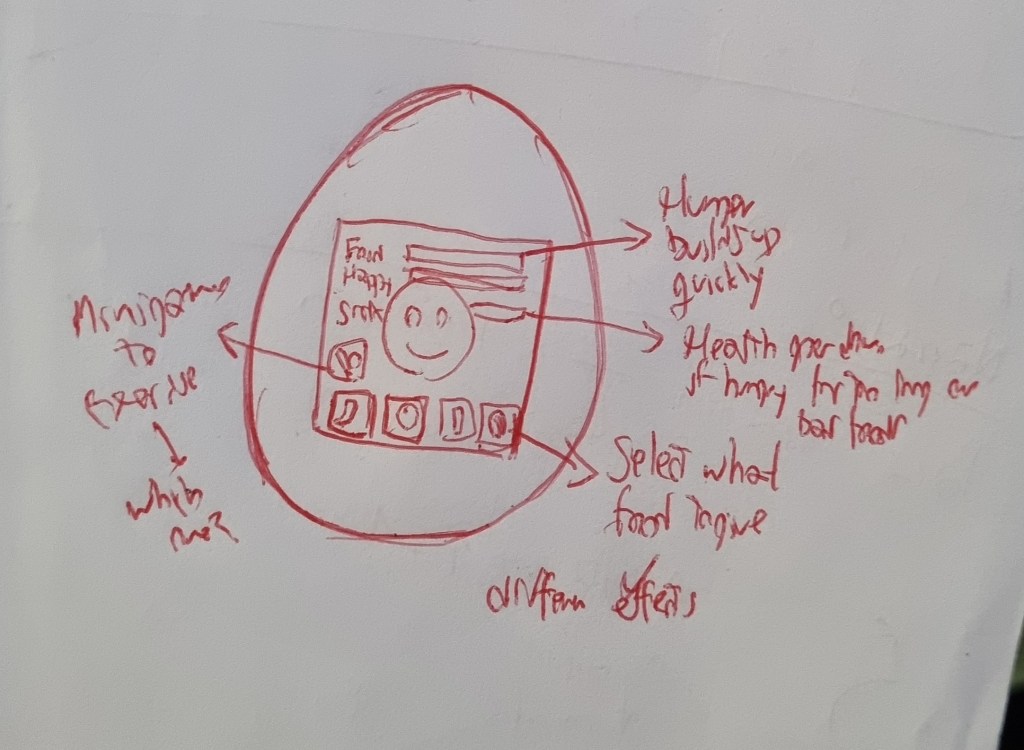 Food
Happy
Minigames
to
exercise
which
one?
Hunger
builds up
quickly
Health goes down
if hungry for too long or
bad food
Select what
food to give
different effects